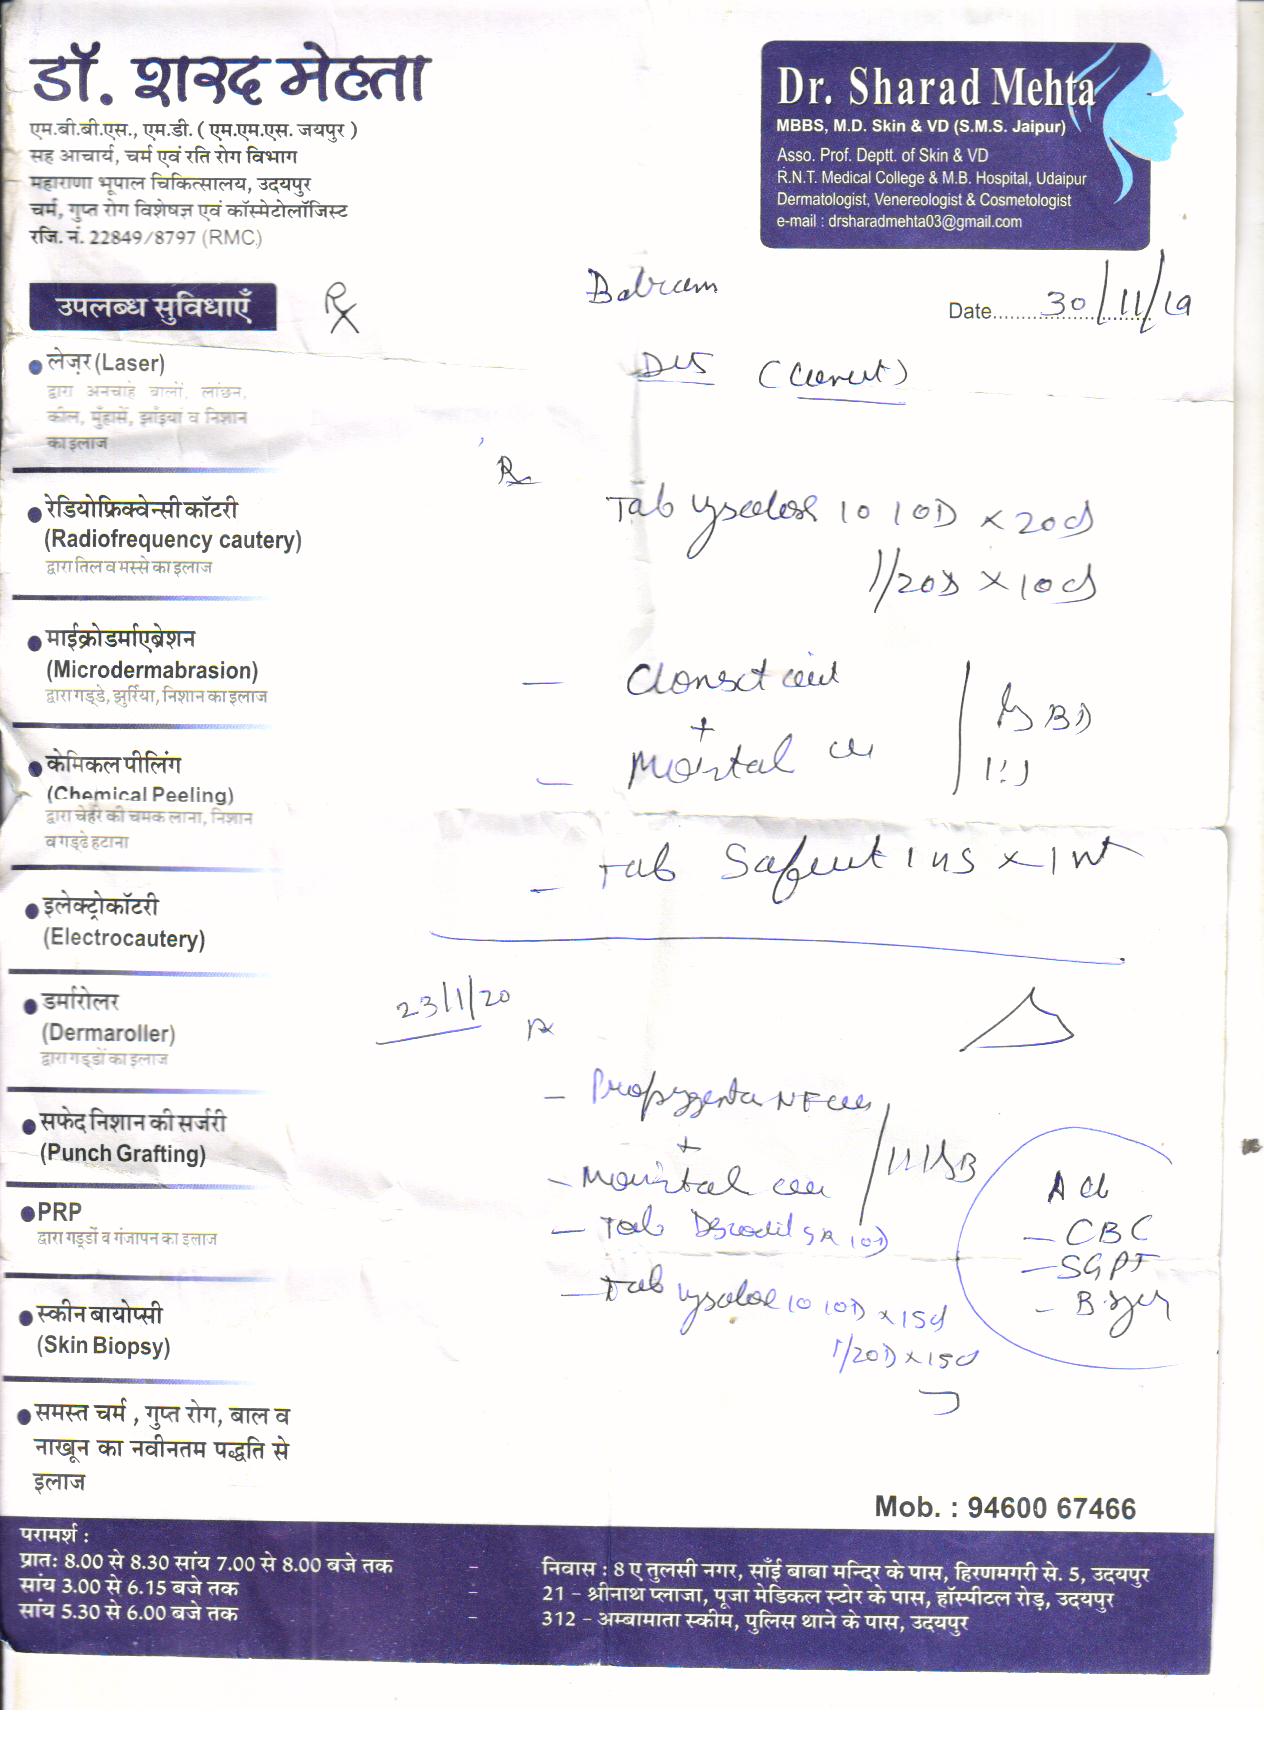 डॉ. शरद मेहता
एम.बी.बी.एस., एम.डी. ( एम.एम.एस. जयपुर )
सह आचार्य, चर्म एवं रति रोग विभाग
महाराणा भूपाल चिकित्सालय, उदयपुर
चर्म, गुप्त रोग विशेषज्ञ एवं कॉस्मेटोलॉजिस्ट
रजि. नं. 22849/8797 (RMC)
Dr. Sharad Mehta
MBBS, M.D. Skin & VD (S.M.S. Jaipur)
Asso. Prof. Deptt. of Skin & VD
R.N.T. Medical College & M.B. Hospital, Udaipur
Dermatologist, Venereologist & Cosmetologist
e-mail : drsharadmehta03@gmail.com
उपलब्ध सुविधाएँ
Date 30/11/19
लेज़र (Laser)
द्वारा अनचाहे बालों, लांछन,
कील, मुँहासें, झाँइयां व निशान
का इलाज
रेडियोफ्रिक्वेन्सी कॉटरी
(Radiofrequency cautery)
द्वारा तिल व मस्से का इलाज
माईक्रोडर्माएब्रेशन
(Microdermabrasion)
द्वारा गड्डे, झुर्रिया, निशान का इलाज
केमिकल पीलिंग
(Chemical Peeling)
द्वारा चेहरे की चमक लाना, निशान
व गड्ढे हटाना
इलेक्ट्रोकॉटरी
(Electrocautery)
डर्मारोलर
(Dermaroller)
द्वारा गड्डों का इलाज
सफेद निशान की सर्जरी
(Punch Grafting)
PRP
द्वारा गड्डों व गंजापन का इलाज
स्कीन बायोप्सी
(Skin Biopsy)
समस्त चर्म , गुप्त रोग, बाल व
नाखून का नवीनतम पद्धति से
इलाज
Tab 10 1OD x 20d
1/2OD x 10d
+
BD
1:1
Tab 1 HS x 1
23/1/20
NF
+
Tab SR 1OD
CBC
SGPT
Tab 10 1OD x 15d
1/2OD x 15d
Mob. : 94600 67466
परामर्श :
प्रातः 8.00 से 8.30 सांय 7.00 से 8.00 बजे तक - निवास : 8 ए तुलसी नगर, साँई बाबा मन्दिर के पास, हिरणमगरी से. 5, उदयपुर
सांय 3.00 से 6.15 बजे तक - 21 – श्रीनाथ प्लाजा, पूजा मेडिकल स्टोर के पास, हॉस्पीटल रोड़, उदयपुर
सांय 5.30 से 6.00 बजे तक - 312 – अम्बामाता स्कीम, पुलिस थाने के पास, उदयपुर